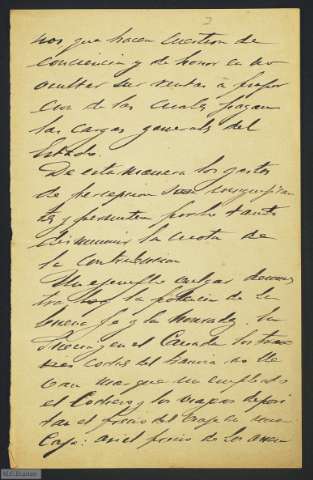 3
nos que hacen cuestion de
conciencia y de honor en no
ocultar sus rentas á propor
cion de las cuales pagan
las cargas generales del
Estado.
De esta manera los gastos
de percepcion son insignifican
tes y permiten por lo tanto
disminuir la cuota de
la contribucion
Un ejemplo vulgar demues
tra la potencia de la
buena fe y la honradez. En
y en el Canadá los tran
vias del Havia no lle
van mas que un empleado
el Cochero y los viajeros deposi
tan el precio del viaje en una
Caja: asi el precio de los